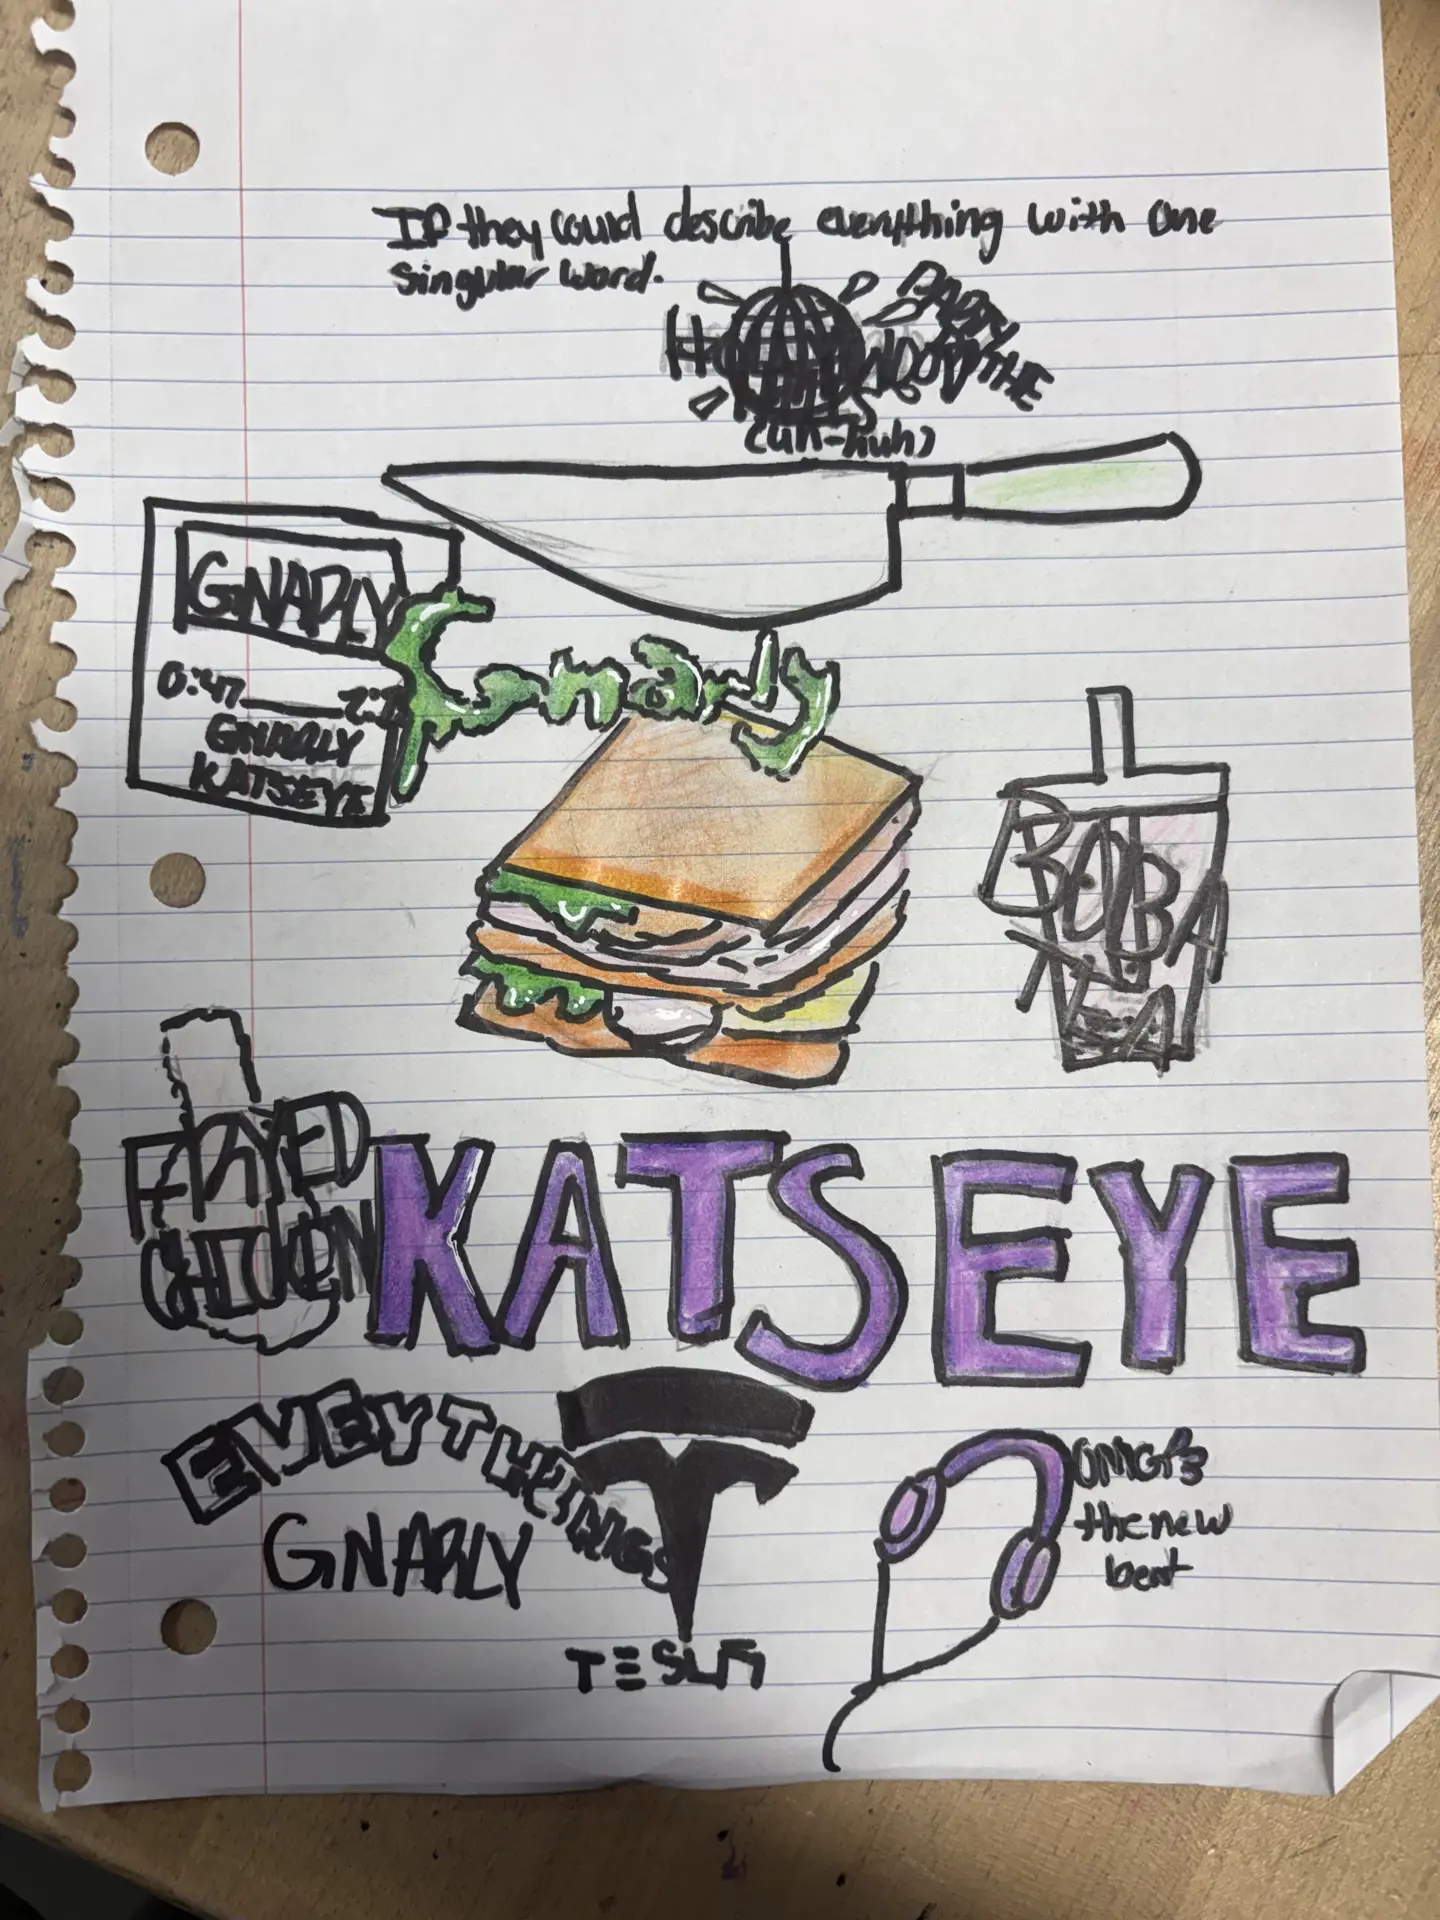 If they could describe everything with one
singular word.
PARTY
IN THE
HOLLYWOOD HILLS
(uh-huh)
GNARLY
0:47
GNARLY
KATSEYE
Gnarly
BOBA
TEA
FRYED
CHICKEN
KATSEYE
EVEYTHINGS
GNARLY
TESLA
OMG
the new
beat